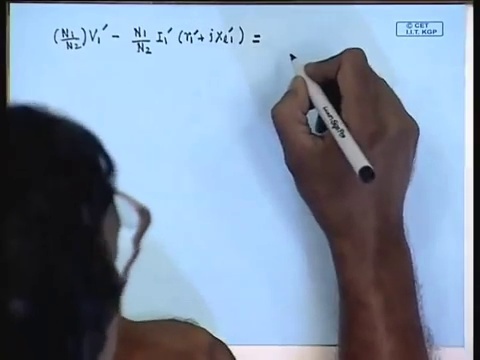 (N1/N2)V1′ − N1/N2 I1′ (r1′ + jxe1′) =
© CET
I.I.T. KGP